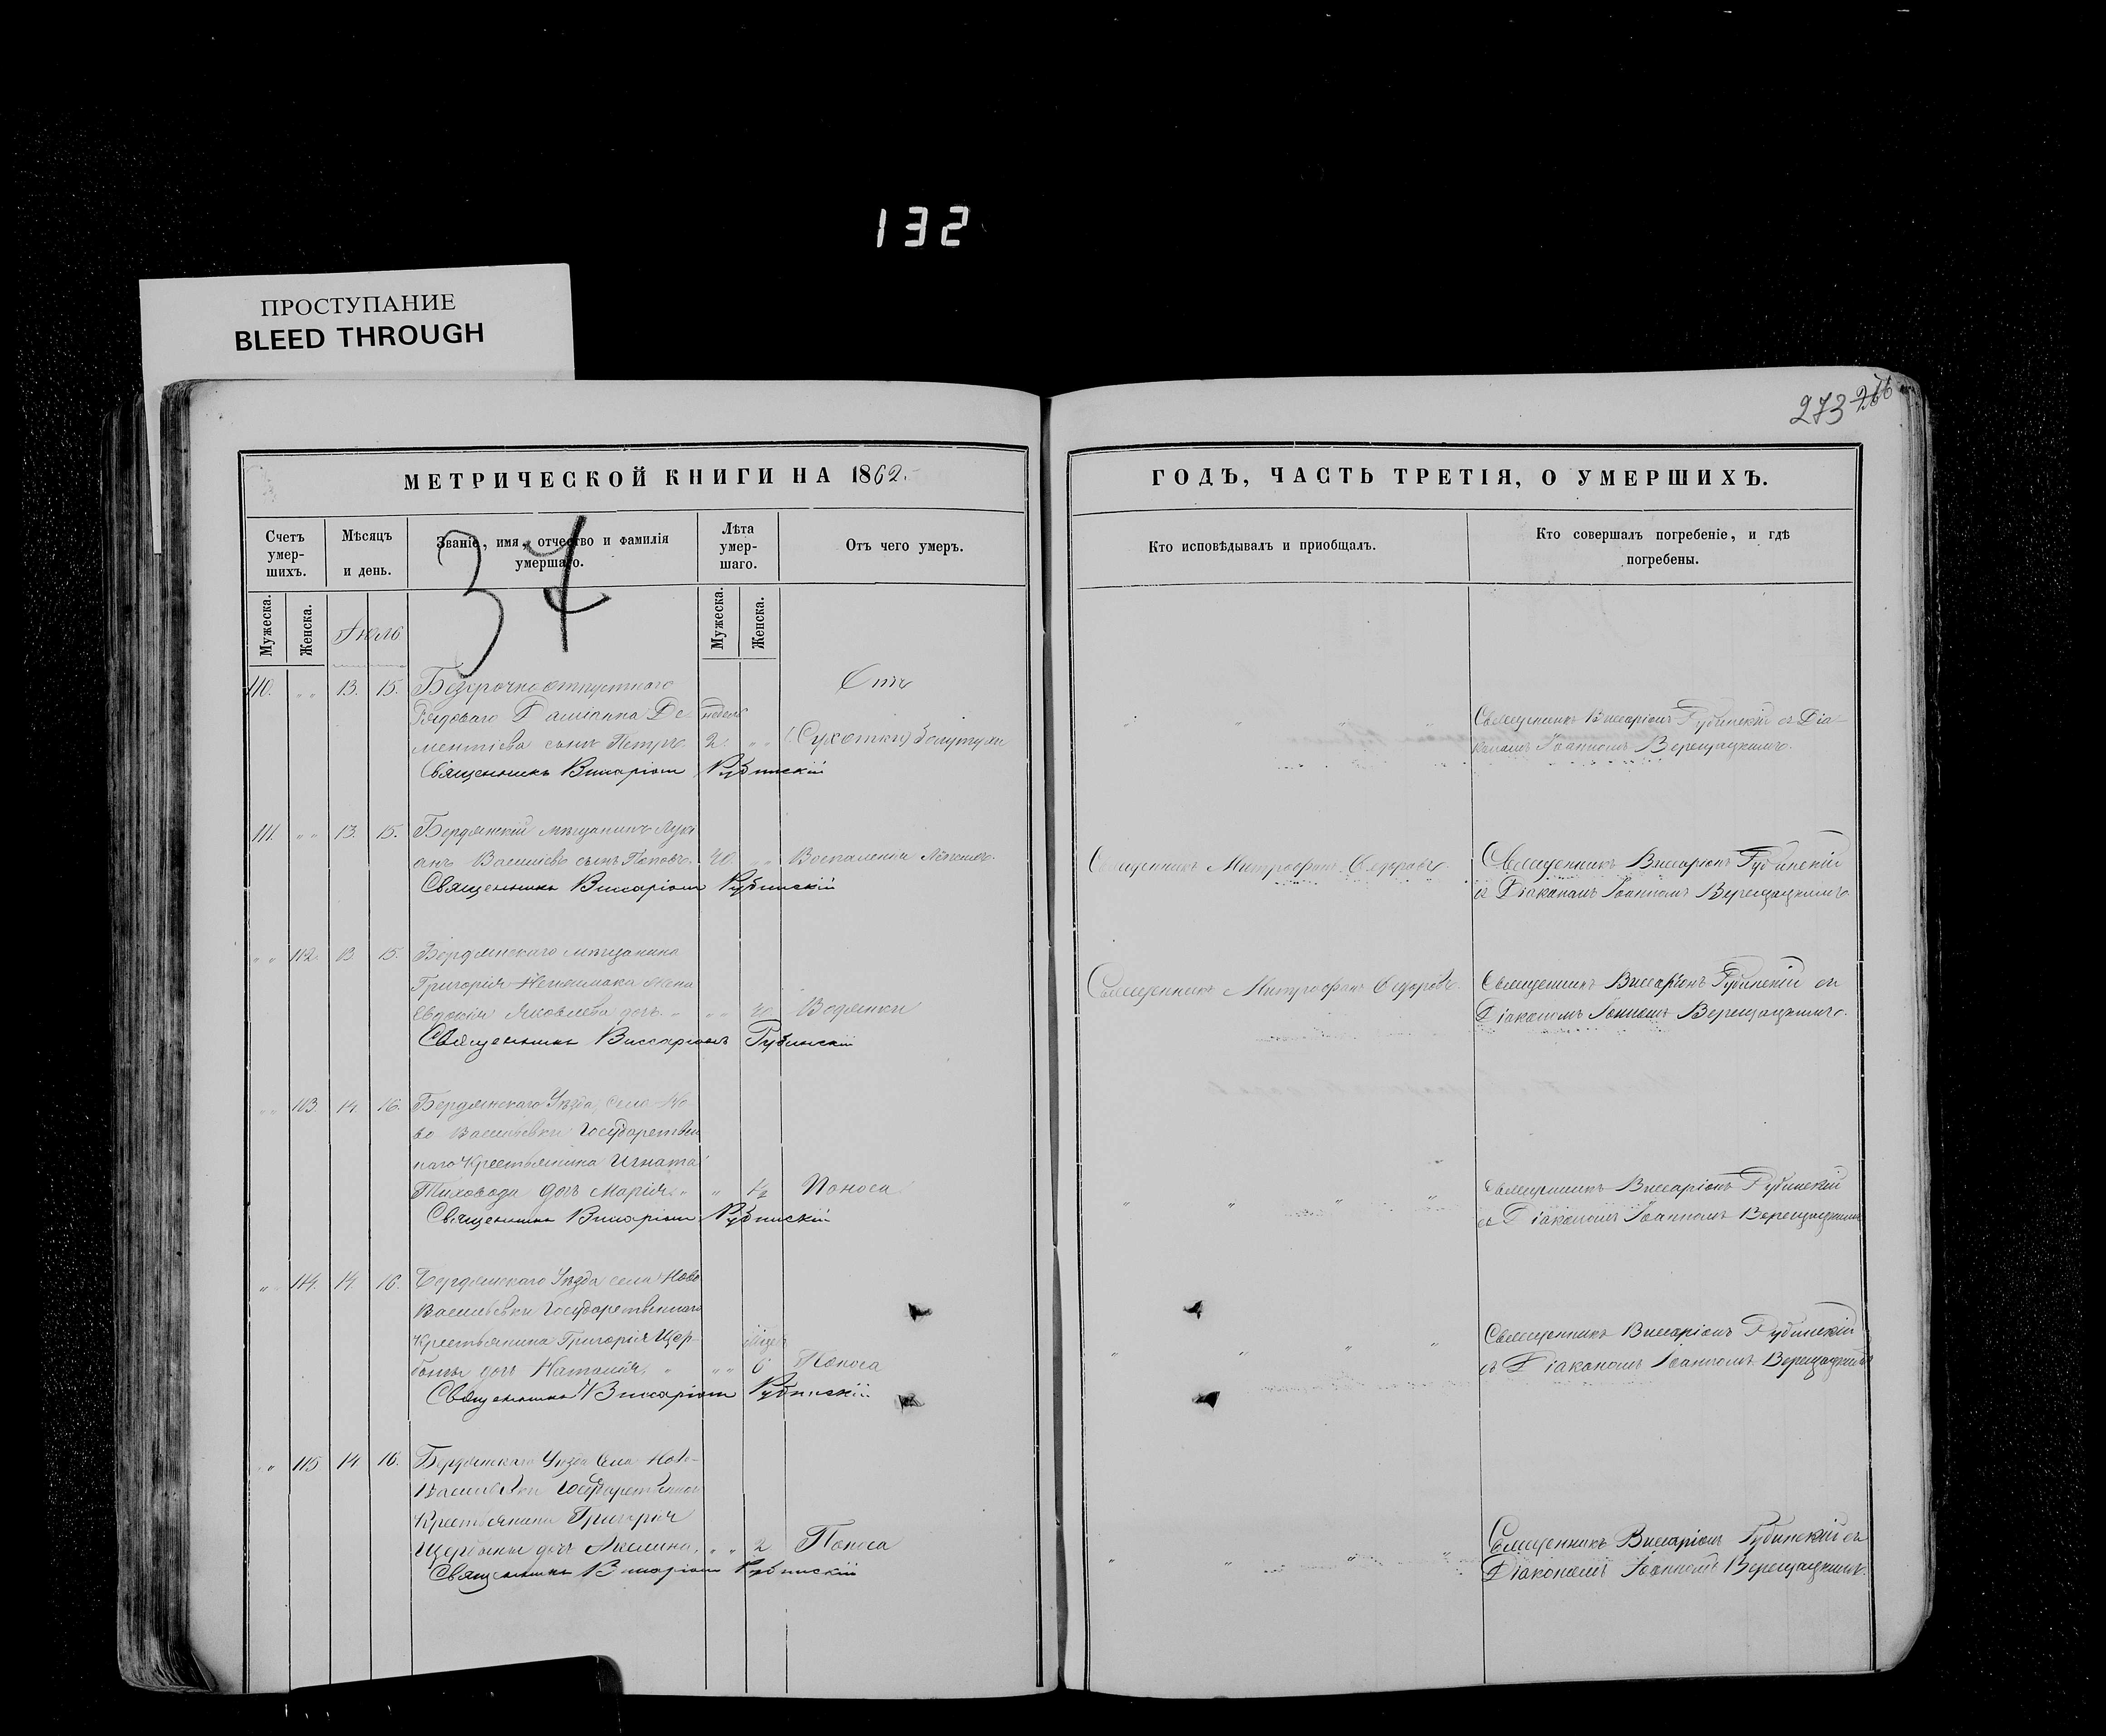 132
ПРОСТУПАНИЕ
BLEED THROUGH
273 266
МЕТРИЧЕСКОЙ КНИГИ НА 1862.
ГОДЪ, ЧАСТЬ ТРЕТІЯ, О УМЕРШИХЪ.
Счетъ умер- шихъ.
Мѣсяцъ и день.
Званіе, имя, отчество и фамилія умершаго.
Лѣта умер- шаго.
Отъ чего умеръ.
Кто исповѣдывалъ и пріобщалъ.
Кто совершалъ погребеніе, и гдѣ погребены.
Мужеска.
Женска.
Мужеска.
Женска.
34
110. " " 13. 15. Безсрочно отпускнаго
Рядоваго Даміанна Де
ментіева сынъ Петръ. 2. " " (Сухотки) Золотухи
Священникъ Виссаріонъ Рубинскій
Священникъ Виссаріонъ Рубинскій съ Діа
кономъ Іоанномъ Верещацкимъ.
111. " " 13. 15. Бердянскій мѣщанинъ Лукі
анъ Васильевъ сынъ Поповъ. 40. " " Воспаленія
Священникъ Виссаріонъ Рубинскій
Священникъ Митрофанъ Федоровъ.
Священникъ Виссаріонъ Рубинскій
съ Діакономъ Іоанномъ Верещацкимъ
" " 112. 13. 15. Бердянскаго мѣщанина
Григорія жена
Евдокія Яковлева дочь. " " " 40. Водянки
Священникъ Виссаріонъ Рубинскій
Священникъ Митрофанъ Федоровъ.
Священникъ Виссаріонъ Рубинскій съ
Діакономъ Іоанномъ Верещацкимъ.
" " 113. 14 16. Бердянскаго Уѣзда, Села Но
во Васильевки Государствен
наго Крестьянина Игната
Тиховода дочь Марія. " " 1/2 Поноса
Священникъ Виссаріонъ Рубинскій
" " " "
Священникъ Виссаріонъ Рубинскій
съ Діакономъ Іоанномъ Верещацкимъ
" 114. 14 16. Бердянскаго Уѣзда села Ново
Васильевки Государственнаго
Крестьянина Григорія Щер-
бины дочь Наталія, " " " 6 Поноса
Священникъ Виссаріонъ Рубинскій
" " " "
Священникъ Виссаріонъ Рубинскій
съ Діакономъ Іоанномъ Верещацкимъ
" 115 14 16. Бердянскаго Уѣзда Села Ново-
Васильевки Государственнаго
Крестьянина Григорія
Щербины дочь " " 2 Поноса
Священникъ Виссаріонъ Рубинскій
" " " "
Священникъ Виссаріонъ Рубинскій съ
Діакономъ Іоанномъ Верещацкимъ.